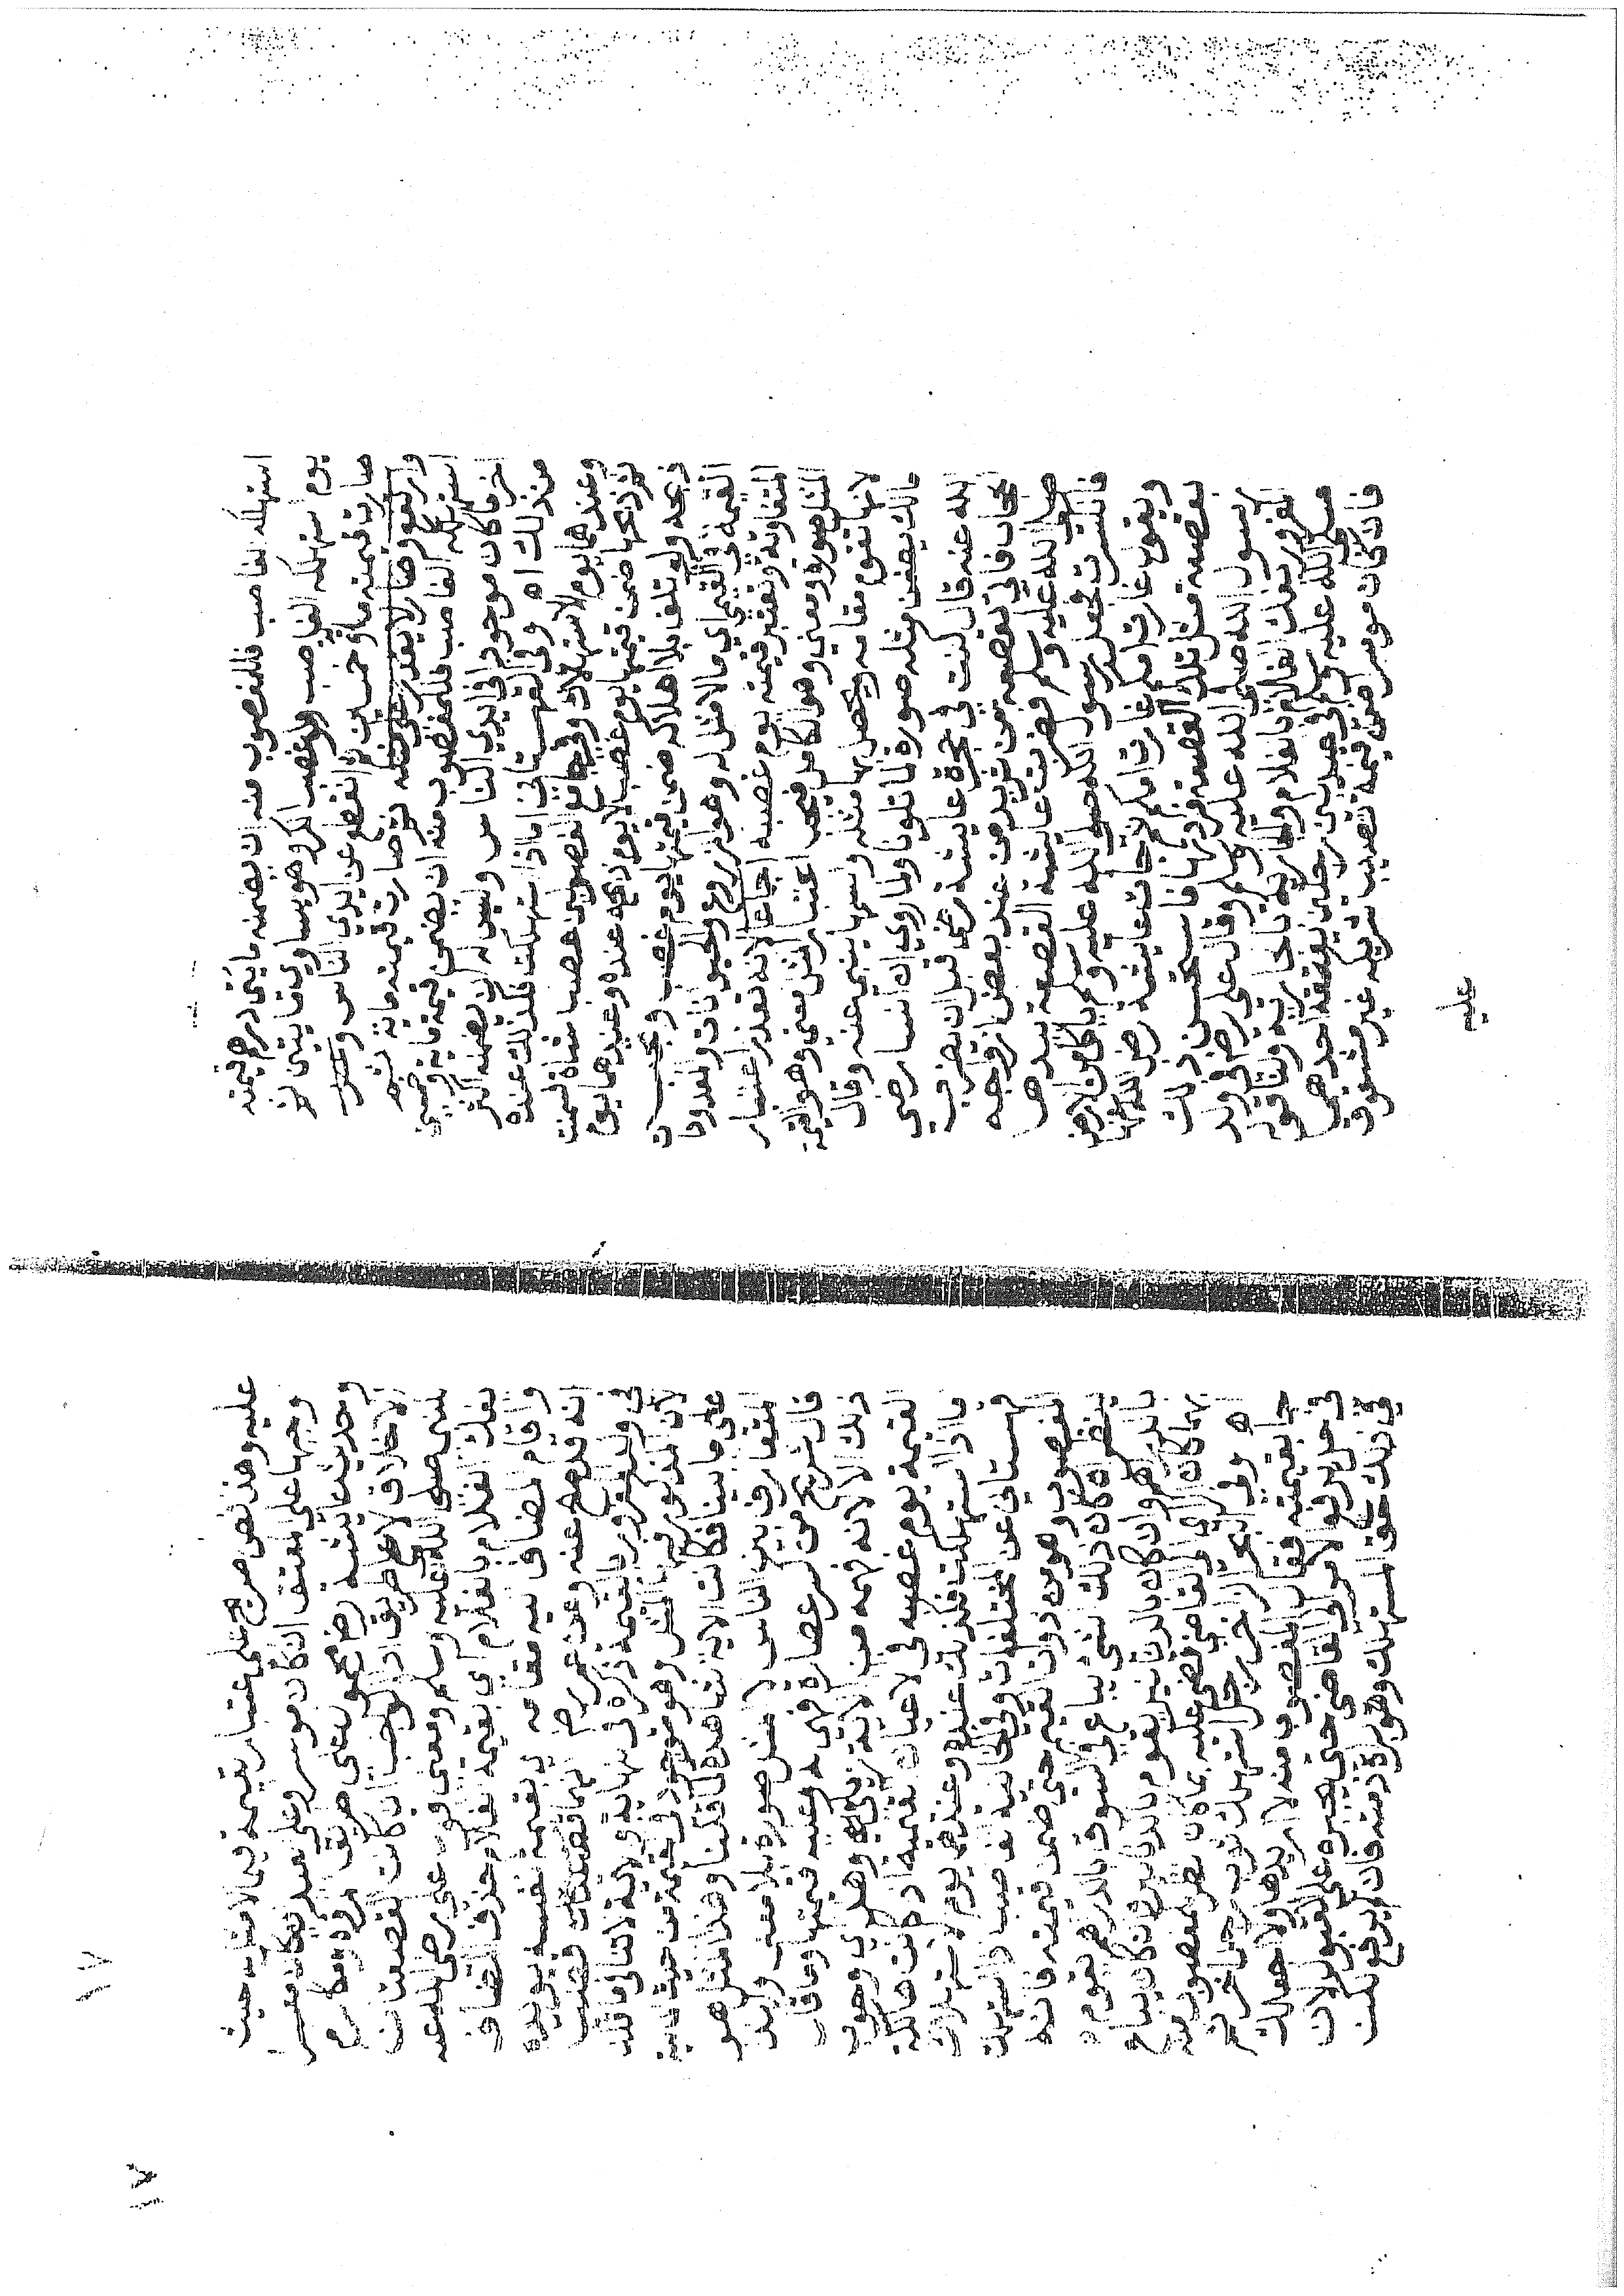 استهلكه الغاصب فللمغصوب منه ان يضمنه مايتي درهم قيمته
يوم استهلكه الغاصب ولو غصب الكر وهو يساوي مايتين ثم
صارت قيمته ماية وخمسين ثم انقطع عن ايدي الناس
وصار لا يقدر على مثله ثم صارت قيمته ماية ثم
استهلكه الغاصب فللمغصوب منه ان يضمن قيمته ماية وخمسين
اخر ما كان موجودا في ايدي الناس وليس له ان يضمنه اكثر
من ذلك اه وفي القهستاني اما اذا استهلكت فكذلك عنده
وعندهما يوم الاستهلاك وفي جامع الفصولين غصب شاة فسمنت
ثم ذبحها ضمن قيمتها يوم غصب لا يوم ذبحه عنده وعندهما يوم
ذبحه ولو تلف بلا اهلاكه ضمن قيمتها يوم غصب وتجب
القيمة في القيمي اي ما لا مثل له وهو المزروع والحيوانات والمعدودات
المتفاوتة وتعتبر قيمته يوم غصبه اجماعا لانه تعذر اعتبار
المثل صورة ومعنى وهو الكامل فيجب اعتبار المثل معنى وهو القيمة
لانها تقوم مقامه ويحصل بها مثله واسمها ينبي عنه وقال
مالك يضمن مثله صورة لما تلونا ولما روي ان انسا رضي
الله عنه قال كنت في حجرة عايشة رضي قبل ان يضرب
الحجاب فاتي بقصعة من ثريد من عند بعض ازواجه
صلى الله عليه وسلم فضربت عايشة القصعة بيدها
فانكسرت فجعل رسول الله صلى الله عليه وسلم ياكل من الارض
ويقول غارت امكم غارت امكم ثم جات عايشة رضي الله عنها
بقصعة مثل تلك القصعة فردتها فاستحسن ذلك
رسول الله صلى الله عليه وسلم وقال علي رضي في ولد
المغرور يفك الغلام بالغلام والجارية بالجارية ولنا قوله
صلى الله عليه وسلم في عبد بين رجلين يعتقه احدهما
فان كان موسرا ضمن قيمة نصيب شريكه غير مشقوق
عليه
عليه وهذا نص صريح على اعتبار القيمة فيما لا مثل له حيث
وجبها على المعتق ان كان موسرا وعلى العبد ان كان معسرا
وحديث عايشة رضي محمول على طريق المروة ومكارم
الاخلاق لا على طريق اداء الواجب اذ كانت القصعتان
للنبي صلى الله عليه وسلم ومعنى قول علي رضي الله عنه
يفك الغلام بالغلام اي بقيمة الغلام وحذف المضاف
واقام المضاف اليه مقامه اي بقيمة نفسه يويده
انه قد صح عنه وعن عمر رضي انهما قضيا
في ولد المغرور بالقيمة ذكره في النهاية والاية لا تنافي ما قلنا
لان المذكور فيها المثل وهو موجود في القيمة من حيث المالية
على ما بينا فكانت الاية شاهدة لما قلنا وهذا المثل هو
المتعارف بين الناس لا المثل صورة بلا معنى واليه
قال شريح من كسر عصا فهي له وعليه قيمتها وما قال
ذلك الا لانه فهمه من الاية زيلعي وهل وجوب
القيمة يوم غصبه في الاعيان القيمية اذ كانت هالكة
ما اذا استهلكت فكذلك عنده وعندهما يوم الاستهلاك
قهستاني عن المختلفات وفي الخانية الغاصب اذا استهلك
المغصوب وهو من ذوات القيم حتى ضمن قيمته فانه
ينظر ان كان ذلك الشي يباع في السوق بالدراهم يقوم
بالدراهم وان كان بالدنانير يقوم بالدنانير وان كان يباع
بهما كان الراي الى القاضي يقضي عليه بما كان انظر للمغصوب منه
اه وفي البحر الزاخر رجل استهلك ثوب رجل اخر ثم
جا بقيمته فقال المغصوب منه لا اريدها ولا اجعلك
في حل يرفع الامر الى القاضي حتى يجبره على القبول لان
في ذلك حق المستهلك وهو براة ذمته فان لم يرفع لكن
١٧
١٧